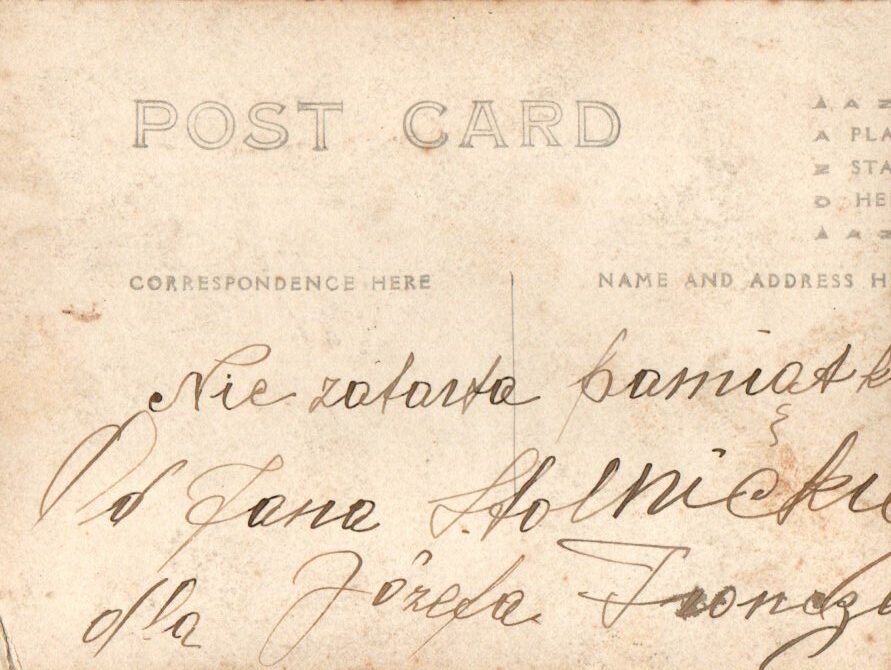 POST CARD
PLA
STA
HE
CORRESPONDENCE HERE
NAME AND ADDRESS H
Nie zatarta pamiątk
Od Jana Stolnicki
dla Józefa